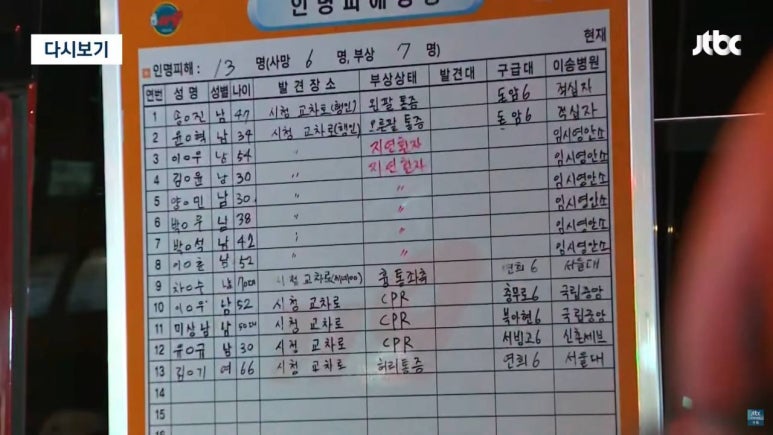 인명피해현황
다시보기
jtbc
현재
인명피해 : 13 명(사망 6 명, 부상 7 명)
연번 성명 성별 나이 발견장소 부상상태 발견대 구급대 이송병원
1 송O진 남 47 시청 교차로(행인) 왼팔 통증 돈암6 적십자
2 윤O혁 남 34 시청 교차로(행인) 오른팔 통증 돈암6 적십자
3 이O우 남 54 〃 지연환자 임시영안소
4 김O윤 남 30 〃 지연환자 임시영안소
5 양O민 남 30 〃 〃 임시영안소
6 박O우 남 38 〃 〃 임시영안소
7 박O석 남 42 〃 〃 임시영안소
8 이O훈 남 52 〃 〃 임시영안소
9 차O수 남 70대 시청 교차로 흉통좌측 연희6 서울대
10 이O우 남 52 시청 교차로 CPR 충무로6 국립중앙
11 미상남 남 50대 시청 교차로 CPR 북아현6 국립중앙
12 윤O규 남 30 시청 교차로 CPR 서빙고6 신촌세브
13 김O기 여 66 시청 교차로 허리통증 연희6 서울대
14
15